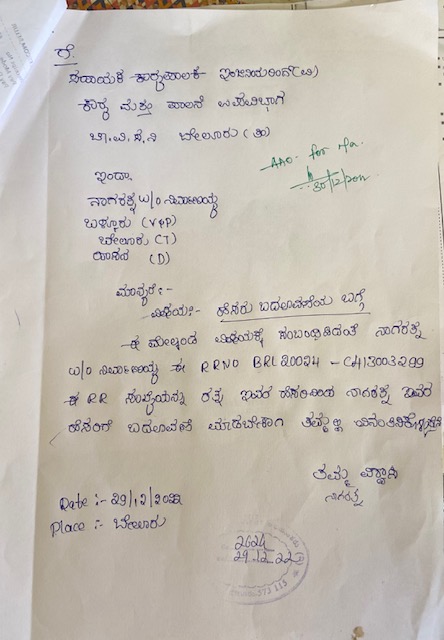 ಗೆ,
ಸಹಾಯಕ ಕಾರ್ಯಪಾಲಕ ಇಂಜಿನಿಯರಿಂಗ್ (ವಿ)
ಕಾರ್ಯ ಮತ್ತು ಪಾಲನೆ ಉಪವಿಭಾಗ
ಚಾ.ವಿ.ಸ.ನಿ ಬೇಲೂರು (ತಾ)
AAO. for
30/12/2022
ಇಂದಾ,
ನಾಗರತ್ನ W/O ನಿರ್ವಾಣಯ್ಯ
ಬಳ್ಳೂರು (V&P)
ಬೇಲೂರು (T)
ಹಾಸನ (D)
ಮಾನ್ಯರೆ:-
ವಿಷಯ:- ಹೆಸರು ಬದಲಾವಣೆಯ ಬಗ್ಗೆ
ಈ ಮೇಲ್ಕಂಡ ವಿಷಯಕ್ಕೆ ಸಂಬಂಧಿಸಿದಂತೆ ನಾಗರತ್ನ
W/O ನಿರ್ವಾಣಯ್ಯ ಈ RRNO BRL20024 - C413003299
ಈ RR ಸಂಖ್ಯೆಯನ್ನು ರತ್ನ ಇವರ ಹೆಸರಿನಿಂದ ನಾಗರತ್ನ ಇವರ
ಹೆಸರಿಗೆ ಬದಲಾವಣೆ ಮಾಡಬೇಕಾಗಿ ತಮ್ಮಲ್ಲಿ
ತಮ್ಮ ವಿಶ್ವಾಸಿ
ನಾಗರತ್ನ
Date :- 29/12/2022
Place :- ಬೇಲೂರು
2624
29.12.22
573 115